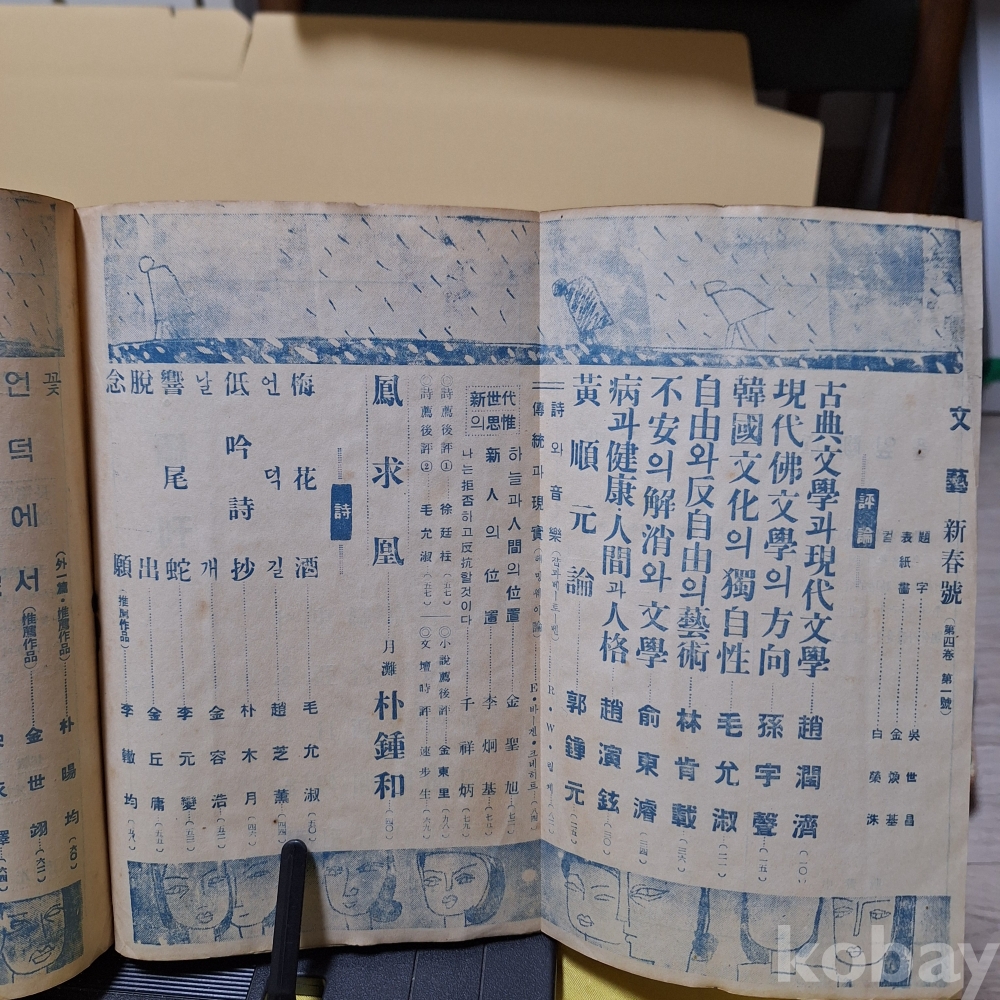 文藝 新春號 (第四卷 第一號)
題字 吳世昌
表紙畵 金渙基
컽 白榮洙
評論
古典文學과現代文學 趙潤濟 (一〇)
現代佛文學의方向 孫宇聲 (一五)
韓國文化의獨自性 毛允淑 (二一)
自由와反自由의藝術 林肯載 (二六)
不安의解消와文學 俞東濬 (三四)
病과健康·人間과人格 趙演鉉 (三〇)
黃順元論 郭鍾元 (二五)
詩와音樂 R·W·
傳統과現實 E·
新世代의思惟
하늘과人間의位置 金聖旭 (七二)
新人의位置 李炯基 (七五)
나는拒否하고反抗할것이다 千祥炳 (七九)
◎詩薦後評① 徐廷柱 (五七) ◎小說薦後評 金東里 (九八)
◎詩薦後評② 毛允淑 (五七) ◎文壇時評 速步生 (六九)
鳳求凰 月灘 朴鍾和 (四〇)
詩
梅花酒 毛允淑 (五〇)
언덕길 趙芝薰 (四四)
低吟詩抄 朴木月 (四六)
날개 金容浩 (五二)
響尾蛇 李元燮 (五三)
脫出 金丘庸 (五五)
念願 (推薦作品) 李轍均 (五八)
꽃 (外一篇·推薦作品) 朴陽均 (六〇)
언덕에서 (推薦作品) 金世翊 (六二)
kobay